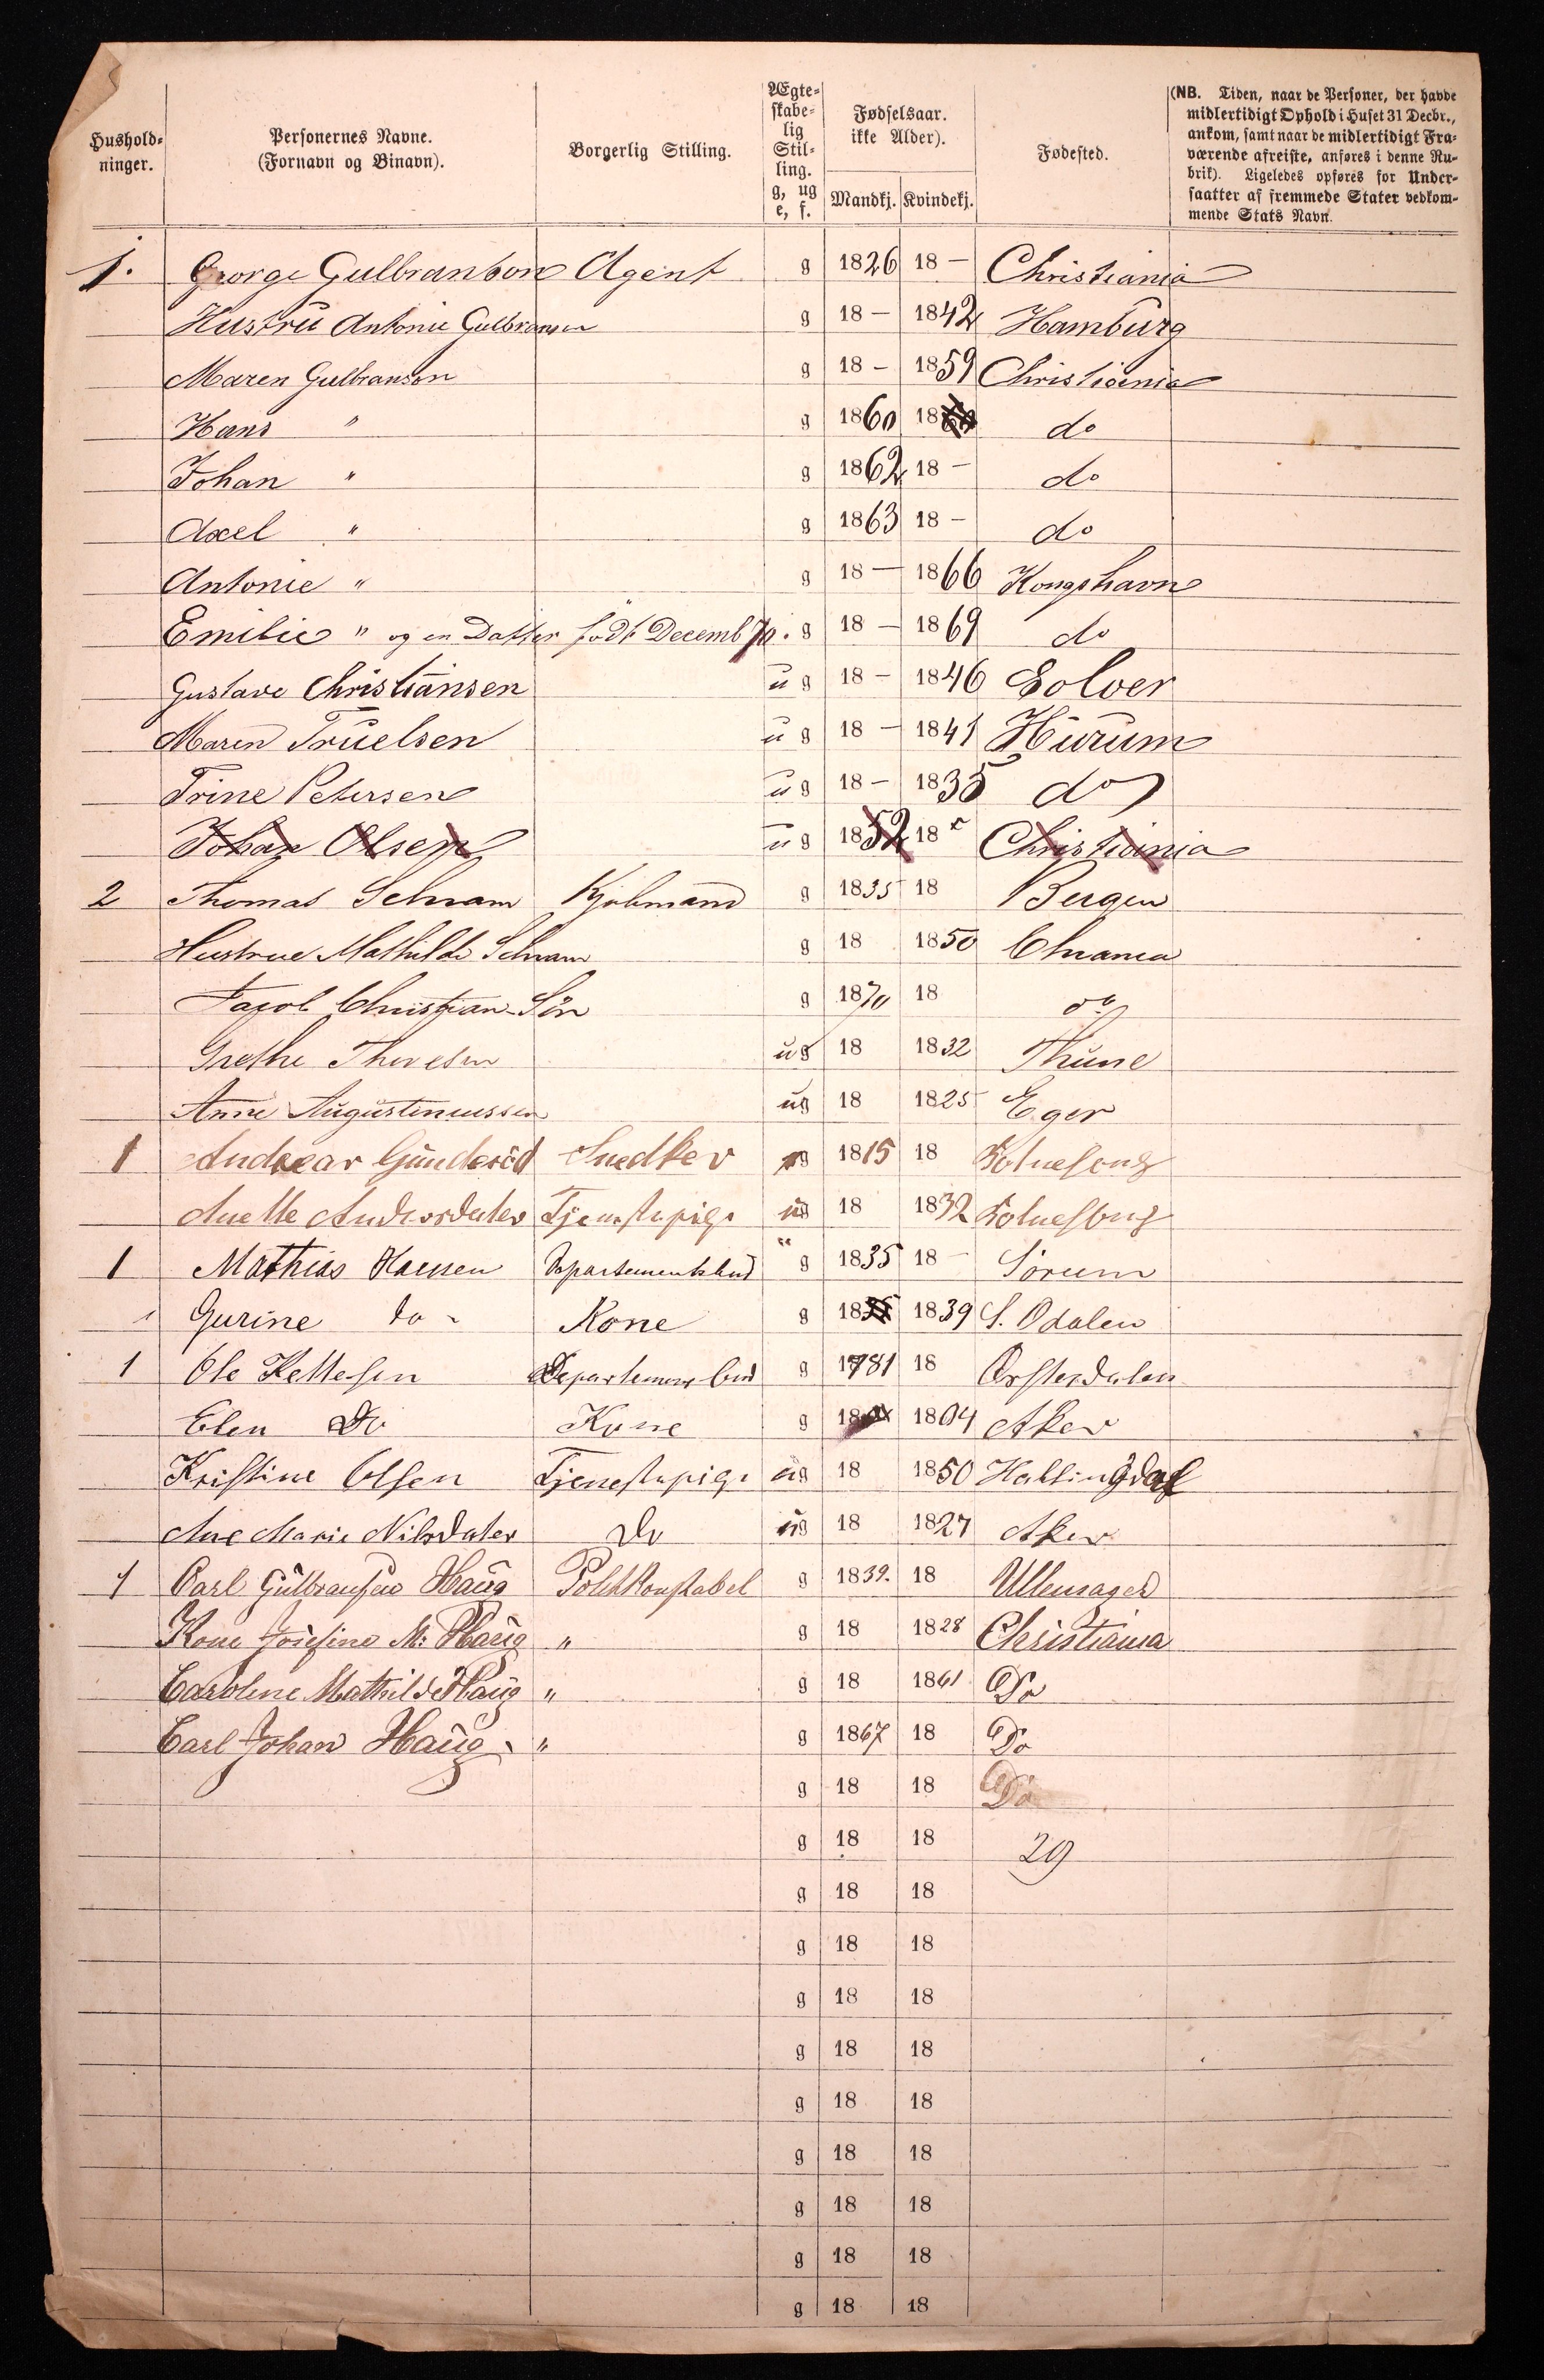 Hushold-
ninger.
Personernes Navne.
(Fornavn og Binavn).
Borgerlig Stilling.
Ægte-
skabe-
lig
Stil-
ling.
g, ug
e, f.
Fødselsaar.
ikke Alder).
Mandkj. Kvindekj.
Fødested.
(NB. Tiden, naar de Personer, der havde
midlertidigt Ophold i Huset 31 Decbr.,
ankom, samt naar de midlertidigt Fra-
værende afreiste, anføres i denne Ru-
brik). Ligeledes opføres for Under-
saatter af fremmede Stater vedkom-
mende Stats Navn.
1. George Gulbranson Agent g 1826 18 — Christiania
Hustru Antonie Gulbransen g 18 — 1842 Hamburg
Maren Gulbranson g 18 — 1859 Christiania
Hans " g 1860 18 do
Johan " g 1862 18 — do
Axel " g 1863 18 — do
Antonie " g 18 — 1866 Kongshavn
Emilie " og en Datter født Decemb 70. g 18 — 1869 do
Gustave Christiansen u g 18 — 1846 Solver
Maren Truelsen u g 18 — 1841 Hurum
Trine Petersen u g 18 — 1835 do
Johan Olsen u g 1852 18 Christiania
2 Thomas Schram Kjøbmand g 1835 18 Bergen
Hustrue Mathilde Schram g 18 1850 Chrania
Jacob Christian Søn g 1870 18 do
Grethe Thoresen ug 18 1832 Thune
Anne Augustinussen ug 18 1825 Eger
1 Andreas Gunderød Snedker g 1815 18
Anette Andersdater Tjenestepige ug 18 1832
1 Mathias Hansen Departementsbud g 1835 18 — Sørum
1 Gurine do - Kone g 1835 1839 S. Odalen
1 Ole Kettelsen Departementsbud g 1781 18 Østerdalen
Elen Do Kone g 18 1804 Aker
Kristine Olsen Tjenestepige ug 18 1850 Hallingdal
Ane Marie Nilsdater Do ug 18 1827 Aker
1 Carl Gulbransen Haug Politikonstabel g 1839. 18 Ullensager
Kone Josefine M: Haug " g 18 1828 Christiania
Caroline Mathilde Haug " g 18 1861 Do
Carl Johan Haug " g 1867 18 Do
g 18 18 Do
g 18 18 29
g 18 18
g 18 18
g 18 18
g 18 18
g 18 18
g 18 18
g 18 18
g 18 18
g 18 18